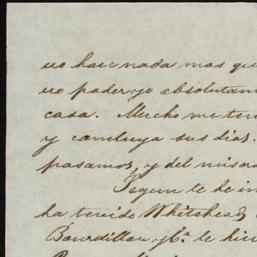 no hace nada mas que
no poder yo absolutam
casa. Mucho me ten
y concluya sus dias.
pasamos, y del mismo
Segun te he in
ha tenido Whitehead
Bourdillon y Cª. le hic